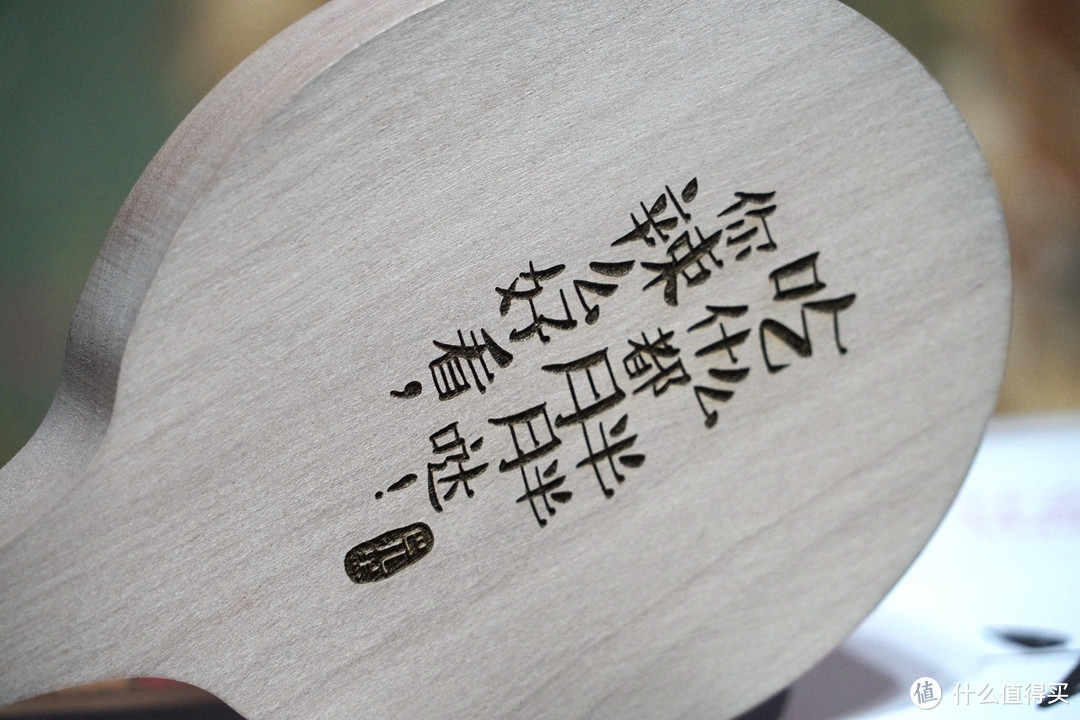 你辣么好看，
吃什么都胖胖哒！
值 什么值得买